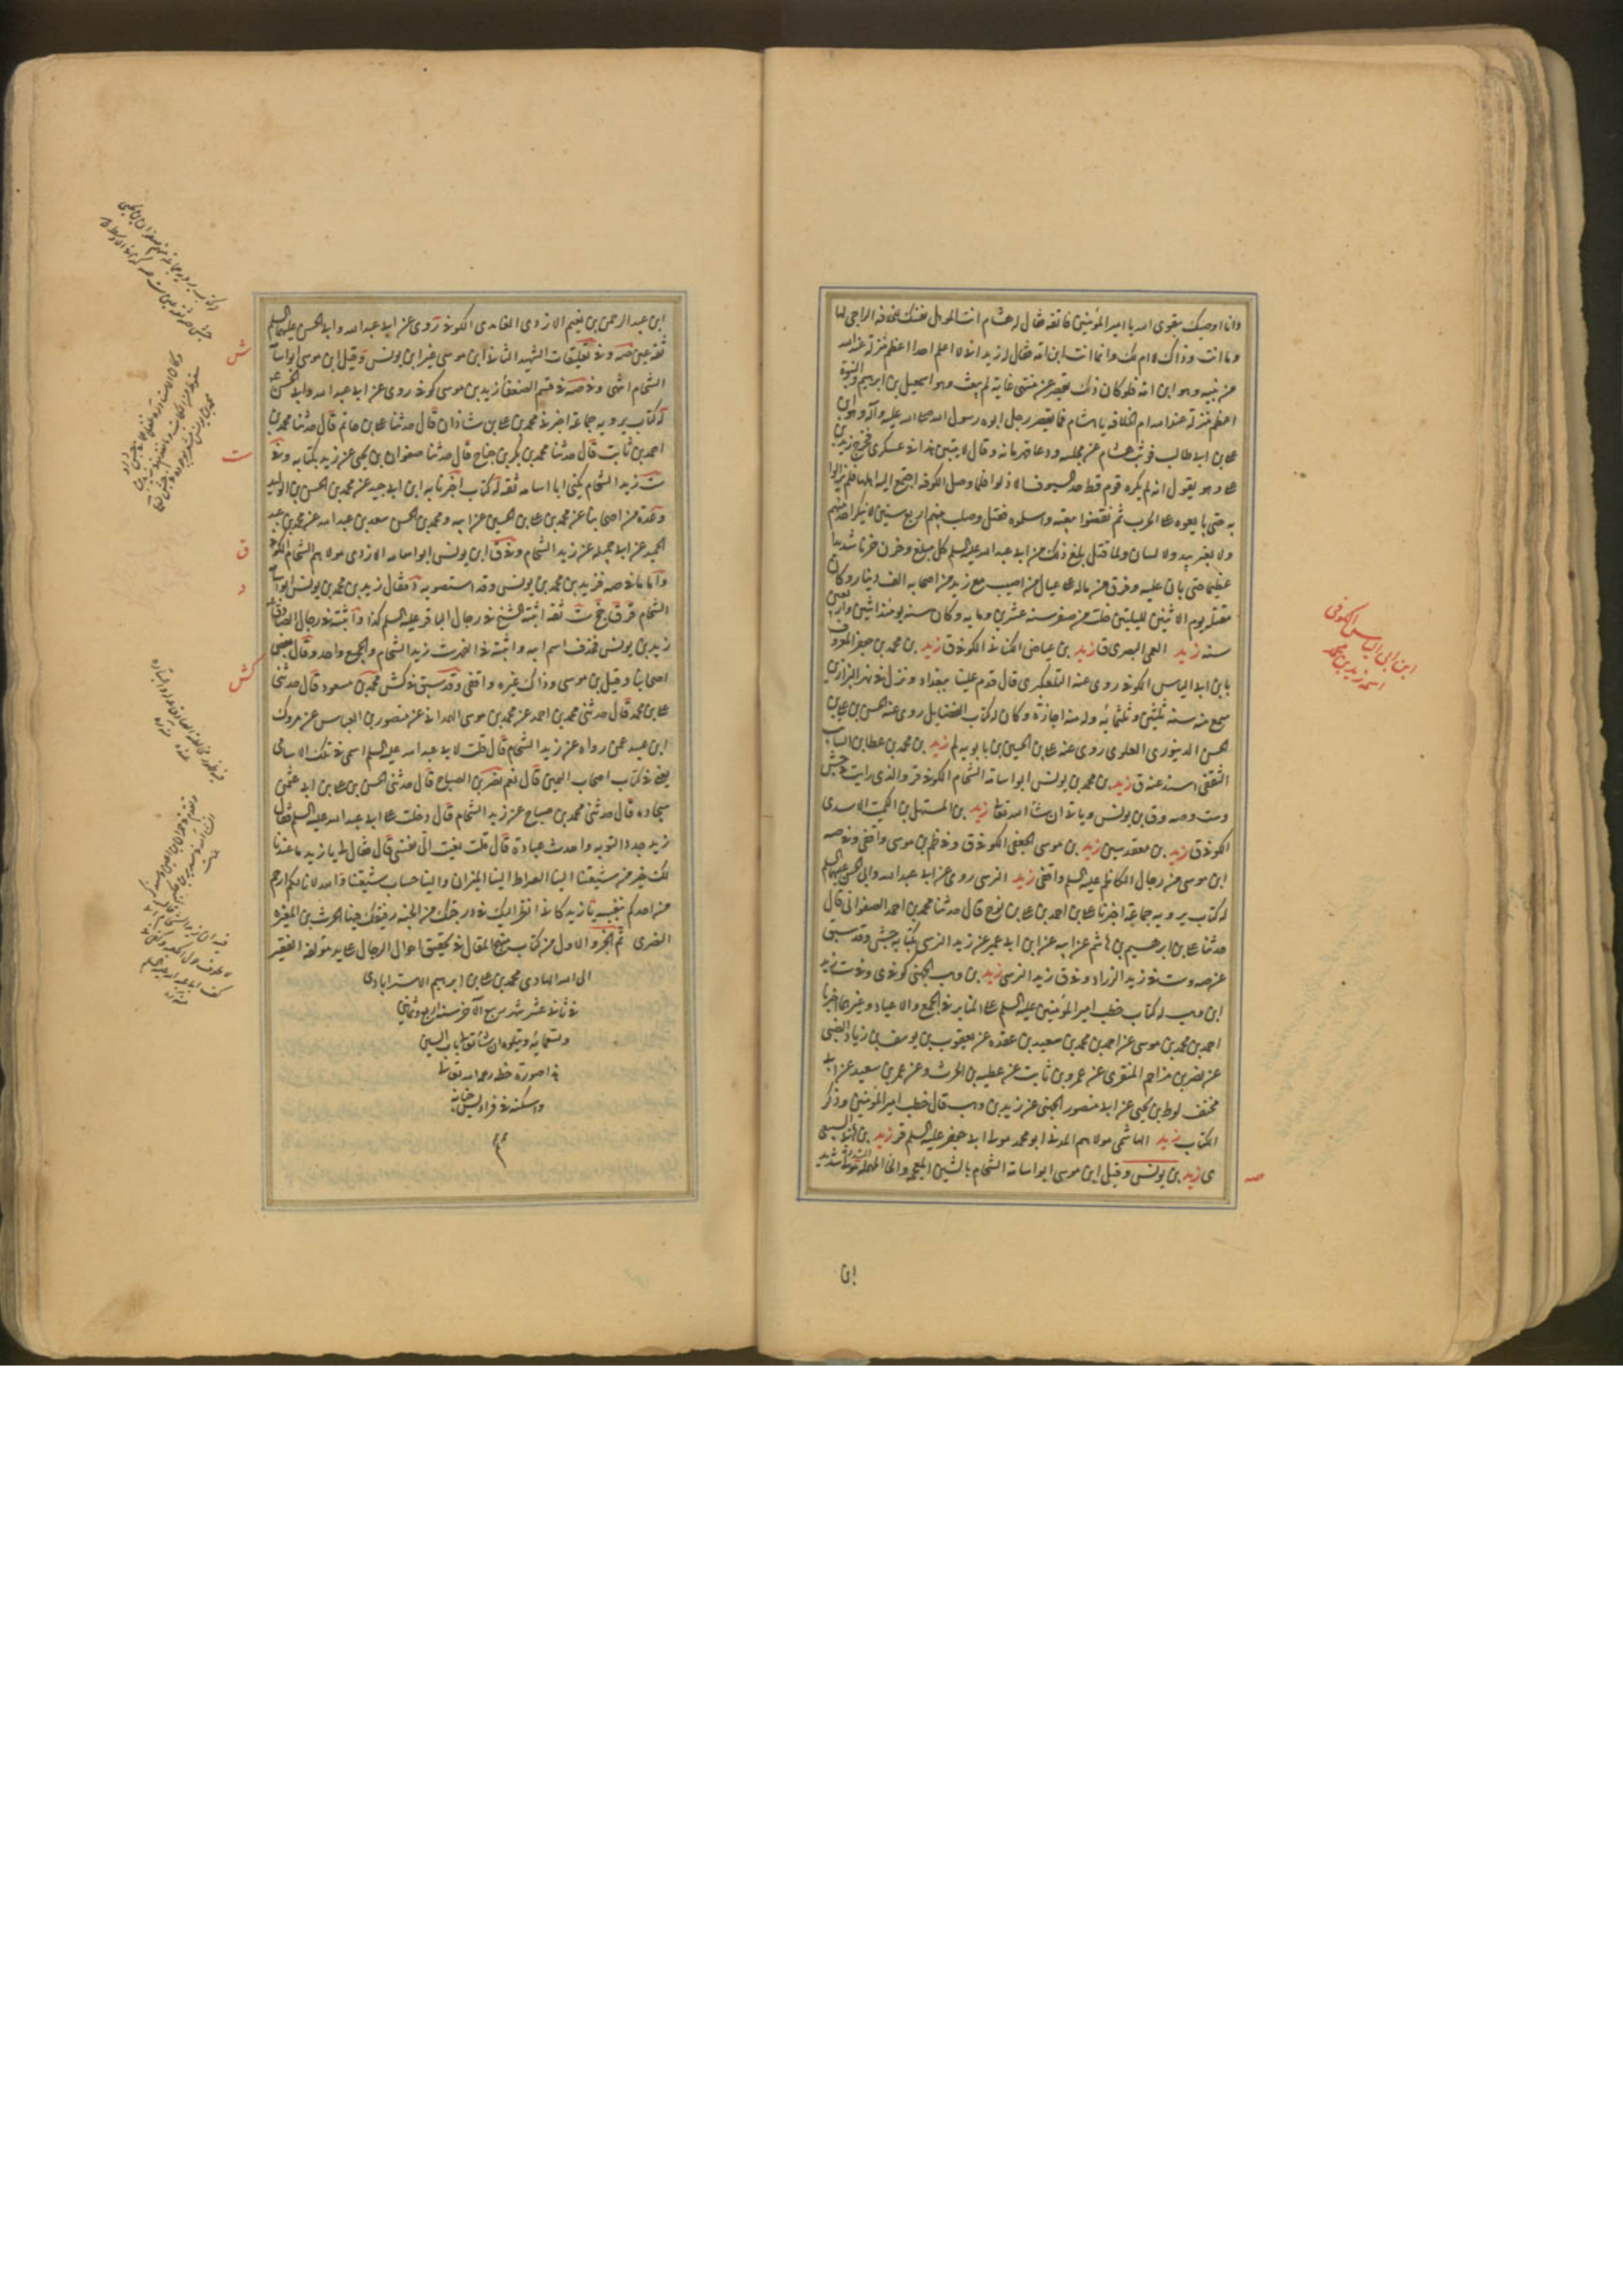 وانا اوصيك بتقوى الله يا امير المؤمنين فاتقه فقال له هشام انت المؤهل نفسك للخلافة الراجى لها
وما انت وذاك لا ام لك وانما انت ابن امة فقال له زيد انى لا اعلم احدا اعظم منزلة عند الله
من نبيه وهو ابن امة فلو كان ذلك يقصر عن منتهى غاية لم يبعث وهو اسمعيل بن ابرهيم والنبوة
اعظم منزلة عند الله ام الخلافة يا هشام فما يقصر رجل ابوه رسول الله صلى الله عليه وآله وهو ابن
على بن ابى طالب فوثب هشام عن مجلسه ودعا قهرمانه وقال لا يبيتن هذا فى عسكرى فخرج زيد
وهو يقول انه لم يكره قوم قط حد السيوف الا ذلوا فلما وصل الكوفة اجتمع اليه اهلها فلم يزالوا
به حتى بايعوه على الحرب ثم نقضوا بيعته وسلموه فقتل وصلب بينهم اربع سنين لا ينكر احد منهم
ولا يغير بيد ولا لسان ولما قتل بلغ ذلك من ابى عبد الله عليه السلم كل مبلغ وحزن حزنا شديدا
عظيما حتى بان عليه وفرق من ماله على عيال من اصيب مع زيد من اصحابه الف دينار وكان
مقتله يوم الاثنين لليلتين خلتا من صفر سنة عشرين ومايه وكان سنه يومئذ اثنين واربعين
سنه زيد العمى البصرى ق زيد بن عياض الكنانى الكوفى ق زيد بن محمد بن جعفر المعروف
بابن ابى الياس الكوفى روى عنه التلعكبرى قال قدم علينا بغداد ونزل فى نهر البزازين
سمع منه سنة ثلثين وثلثمائه وله منه اجازة وكان له كتاب الفضايل روى عنه الحسن بن على بن
الحسن الدينورى العلوى روى عنه على بن الحسين بن بابويه لم زيد بن محمد بن عطا بن السايب
الثقفى اسند عنه ق زيد بن محمد بن يونس ابو اسامة الشحام الكوفى قر والذى رايت فى جش
وست وصه وق بن يونس وياتى ان شا الله تعالى زيد بن المستهل بن الكميت الاسدى
الكوفى ق زيد بن معقد سين زيد بن موسى الجعفى الكوفى ق وفى ظم بن موسى واقفى وفى صه
ابن موسى من رجال الكاظم عليه السلم واقفى زيد النرسى روى عن ابى عبد الله وابى الحسن عليهما السلم
له كتاب يرويه جماعة اخبرنا على بن احمد بن على بن نوح قال حدثنا محمد بن احمد الصفوانى قال
حدثنا على بن ابرهيم بن هاشم عن ابيه عن ابن ابى عمير عن زيد النرسى بكتابه جش وقد سبق
عن صه وست فى زيد الزراد وفى ق زيد النرسى زيد بن وهب الجهنى كوفى ى وفى ست زيد
ابن وهب له كتاب خطب امير المؤمنين عليه السلم على المنابر فى الجمع والاعياد وغيرهما اخبرنا
احمد بن محمد بن موسى عن احمد بن محمد بن سعيد بن عقده عن يعقوب بن يوسف بن زياد الضبى
عن نصر بن مزاحم المنقرى عن عمرو بن ثابت عن عطيه بن الحرث وعن عمر بن سعيد عن ابى
مخنف لوط بن يحيى عن ابى منصور الجهنى عن زيد بن وهب قال خطب امير المؤمنين وذكر
الكتاب زيد الهاشمى مولاهم المدنى ابو محمد مولى ابى جعفر عليه السلم قر زيد بن هانى السبيعى
ى زيد بن يونس وقيل ابن موسى ابو اسامة الشحام بالشين المعجمه والحا المهملة
صه
ابن ابى الياس الكوفى
اسمه زيد بن محمد
ابن
ابن عبد الرحمن بن نعيم الازدى الغامدى الكوفى روى عن ابى عبد الله وابى الحسن عليهما السلم
ثقه عين صه وفى تعليقات الشهيد الثانى ابن موسى غير ابن يونس وقيل ابن موسى ابو اسامة
الشحام انتهى وفى صه فى قسم الضعفا زيد بن موسى كوفى روى عن ابى عبد الله وابى الحسن
له كتاب يرويه جماعة اخبرنى محمد بن على بن شاذان قال حدثنا على بن حاتم قال حدثنا محمد بن
احمد بن ثابت قال حدثنا محمد بن بكر بن جناح قال حدثنا صفوان بن يحيى عن زيد بكتابه وفى
ست زيد الشحام يكنى ابا اسامه ثقه له كتاب اخبرنا به ابن ابى جيد عن محمد بن الحسن بن الوليد
وعدة من اصحابنا عن محمد بن على بن الحسين عن ابيه ومحمد بن الحسن سعد بن عبد الله عن محمد بن عبد
الحميد عن ابى جميله عن زيد الشحام وفى ق ابن يونس ابو اسامه الازدى مولاهم الشحام الكوفى
واما ما فى صه فزيد بن محمد بن يونس وقد استصوبه د فقال زيد بن محمد بن يونس ابو اسامه
الشحام قر ق جخ ست ثقه اثبته الشيخ فى رجال الباقر عليه السلم كذا واثبته فى رجال الصادق
زيد بن يونس فحذف اسم ابيه واثبته فى الفهرست زيد الشحام والجميع واحد وقال بعض
اصحابنا وقيل بن موسى وذاك غيره واقفى وقد سبق فى كش محمد بن مسعود قال حدثنى
على بن محمد قال حدثنى محمد بن احمد عن محمد بن موسى الهمدانى عن منصور بن العباس عن مروك
ابن عبيد عمن رواه عن زيد الشحام قال قلت لابى عبد الله عليه السلم اسمى فى تلك الاسامى
يعنى فى كتاب اصحاب اليمين قال نعم نصر بن الصباح قال حدثنى الحسن بن على بن ابى عثمن
سجاده قال حدثنى محمد بن صباح عن زيد الشحام قال دخلت على ابى عبد الله عليه السلم فقال
زيد جدد التوبه واحدث عبادة قال قلت نعيت الى نفسى قال فقال لى يا زيد ما عندنا
لك خير من شيعتنا الينا الصراط الينا الميزان والينا حساب شيعتنا والله لانا لكم ارحم
من احدكم بنفسه يا زيد كانى انظر اليك فى درجتك من الجنه رفيقك فيها الحرث بن المغيره
النضرى تم الجزو الاول من كتاب منهج المقال فى تحقيق احوال الرجال على يد مؤلفه الفقير
الى الله الهادى محمد بن على بن ابرهيم الاسترابادى
فى ثانى عشر شهر ربيع الآخر سنة اربع وثمانين
وتسعمايه ويتلوه ان شا الله تعالى باب السين
هذا صورة خطه رحمه الله تعالى
واسكنه فى فراديس جنانه
ش
ست
ق
د
كش